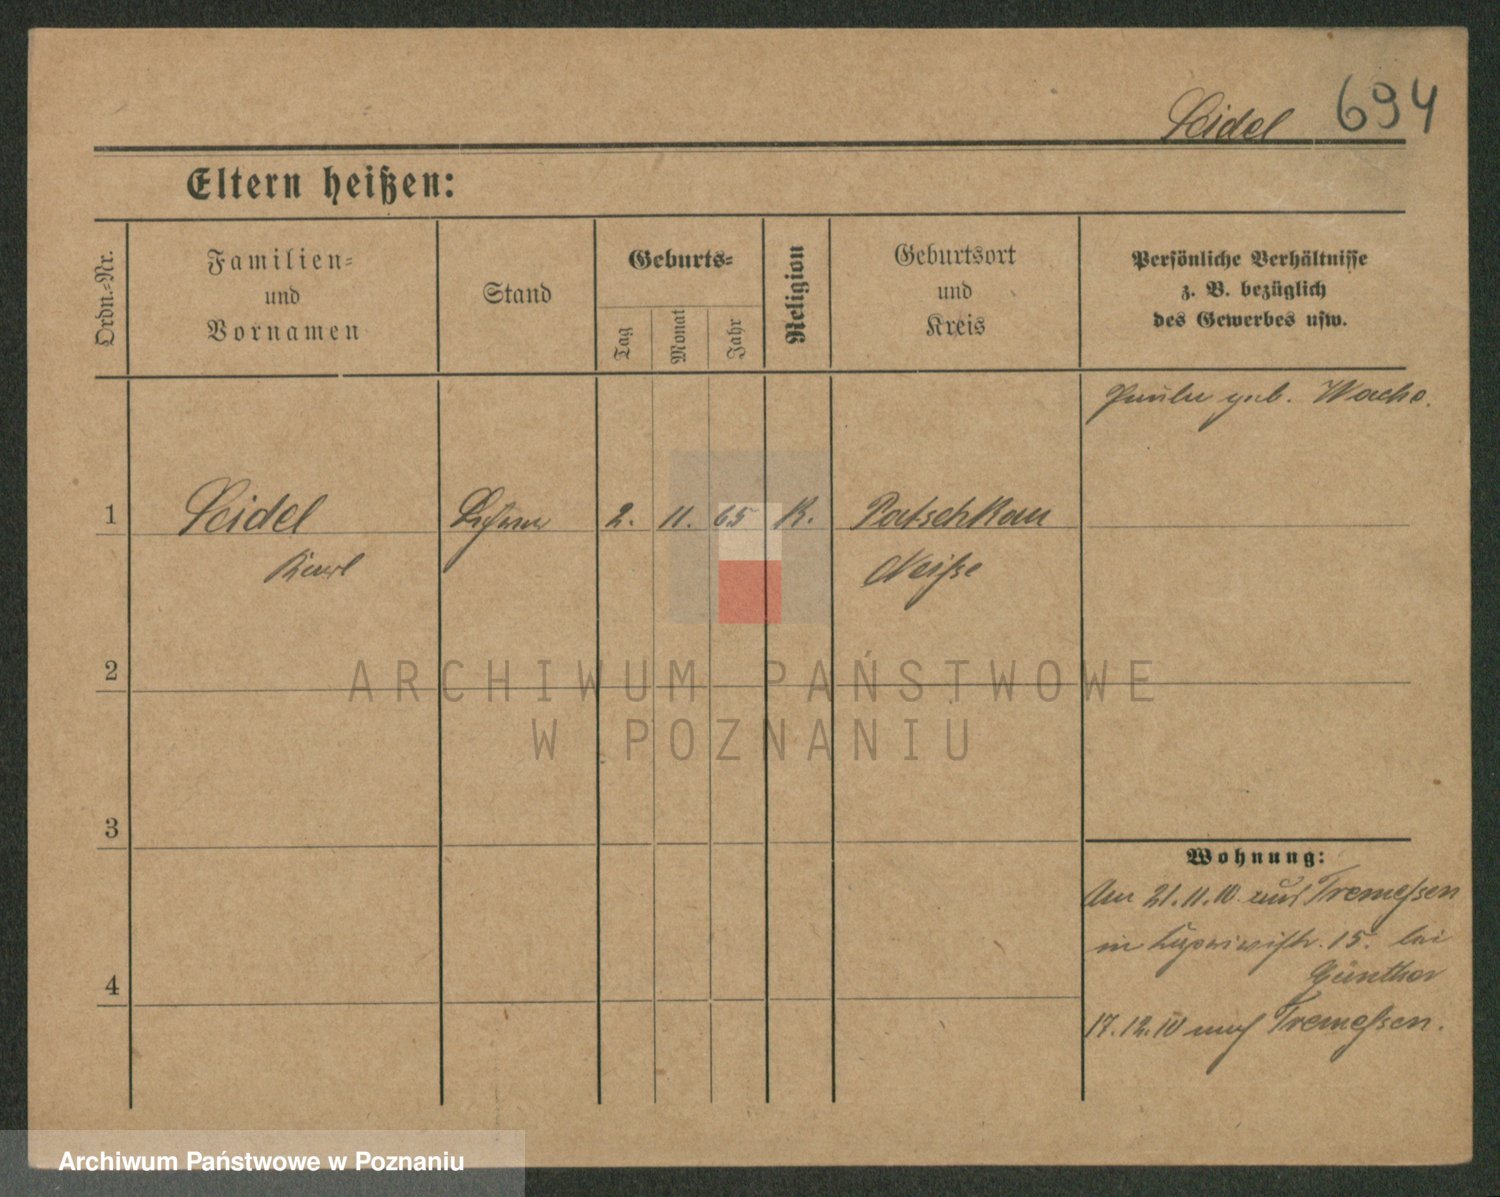 Seidel 694
Eltern heißen:
Ordn.-Nr.
Familien-
und
Vornamen
Stand
Geburts-
Tag
Monat
Jahr
Religion
Geburtsort
und
Kreis
Persönliche Verhältnisse
z. B. bezüglich
des Gewerbes usw.
geb. Wachs.
1 Seidel 2. 11. 65 K. Patschkau
Karl Neiße
2
ARCHIWUM PAŃSTWOWE
W POZNANIU
3
Wohnung:
Am 21.11.10 aus Tremessen
in 15. bei
Günther
4
17.12.10 nach Tremessen.
Archiwum Państwowe w Poznaniu